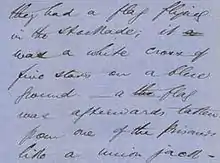 they had a flag flying
in the stockade; it
was a white cross of
five stars on a blue
ground – a flag
was afterwards taken
from one of the prisoners
like a union jack